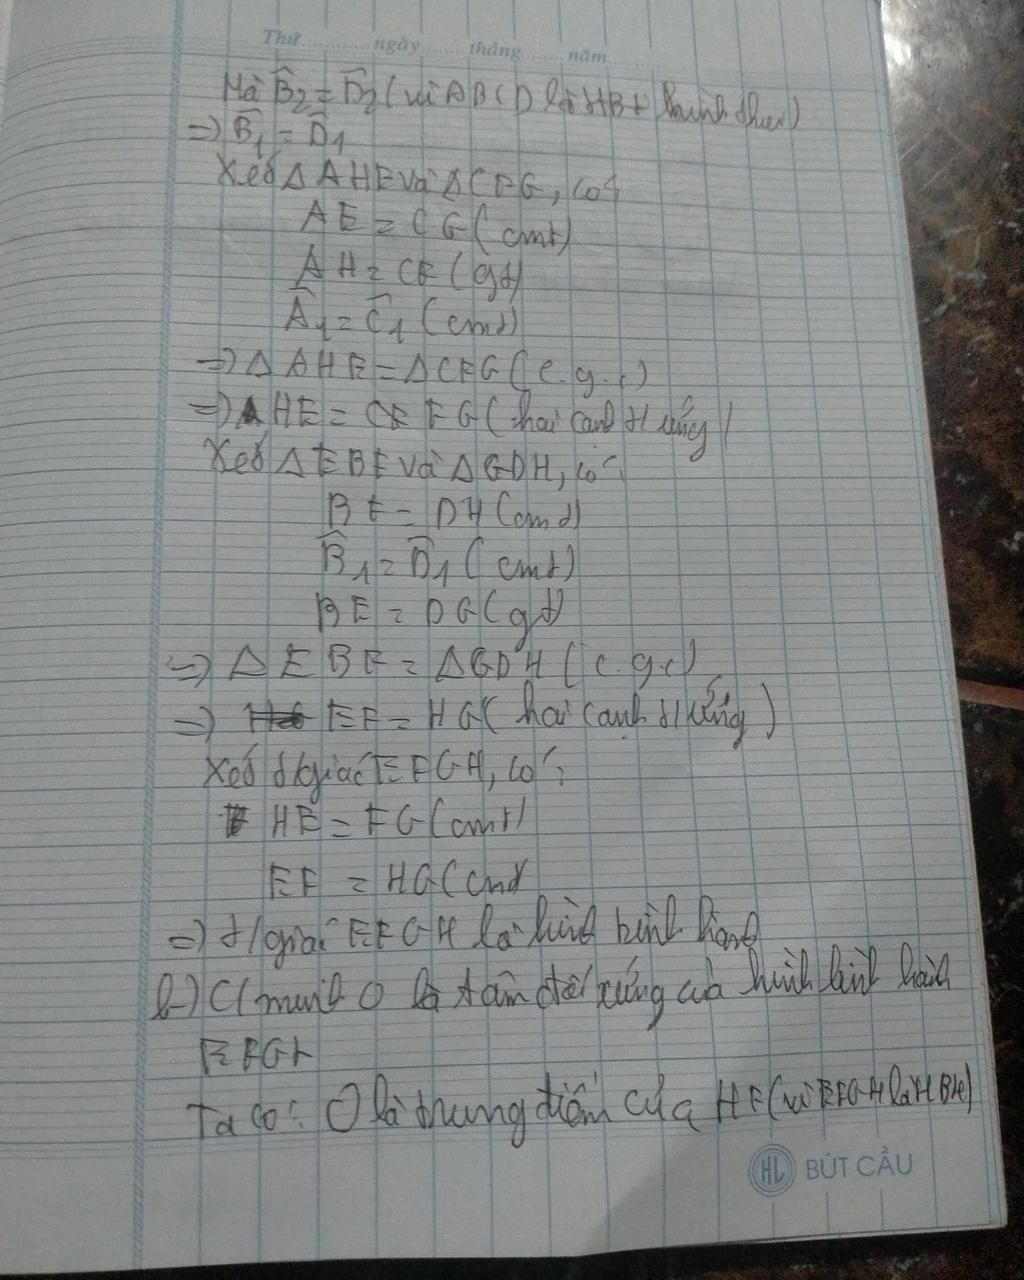 Thứ............ngày.......tháng.......năm..........
Mà B̂₂ = D̂₂ (vì ABCD là HBH
=> B̂₁ = D̂₁
Xét Δ AHE và Δ CFG, có:
AE = CG (cmt)
AH = CF (gt)
Â₁ = Ĉ₁ (cmt)
=> Δ AHE = Δ CFG (c.g.c)
=> HE = FG (hai cạnh t/ứng)
Xét Δ EBF và Δ GDH, có:
BF = DH (cmt)
B̂₁ = D̂₁ (cmt)
BE = DG (gt)
=> Δ EBF = Δ GDH (c.g.c)
=> EF = HG (hai cạnh t/ứng)
Xét t/giác EFGH, có:
HE = FG (cmt)
EF = HG (cmt
=> t/giác EFGH là hình bình hành
b-) C/minh O là tâm đối xứng của hình bình hành
EFGH
Ta có: O là trung điểm của HF (vì EFGH là HBH)
HL BÚT CẦU